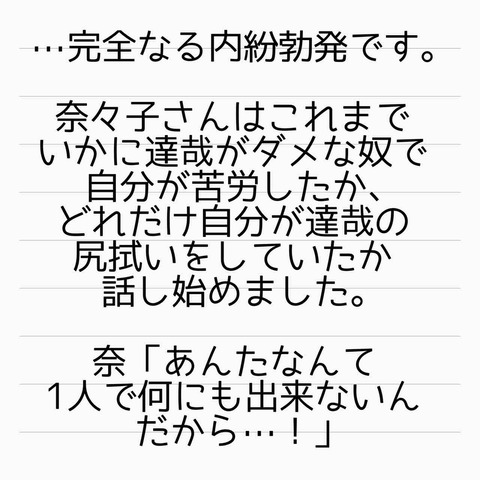 …完全なる内紛勃発です。
奈々子さんはこれまで
いかに達哉がダメな奴で
自分が苦労したか、
どれだけ自分が達哉の
尻拭いをしていたか
話し始めました。
奈「あんたなんて
1人で何にも出来ないん
だから…！」